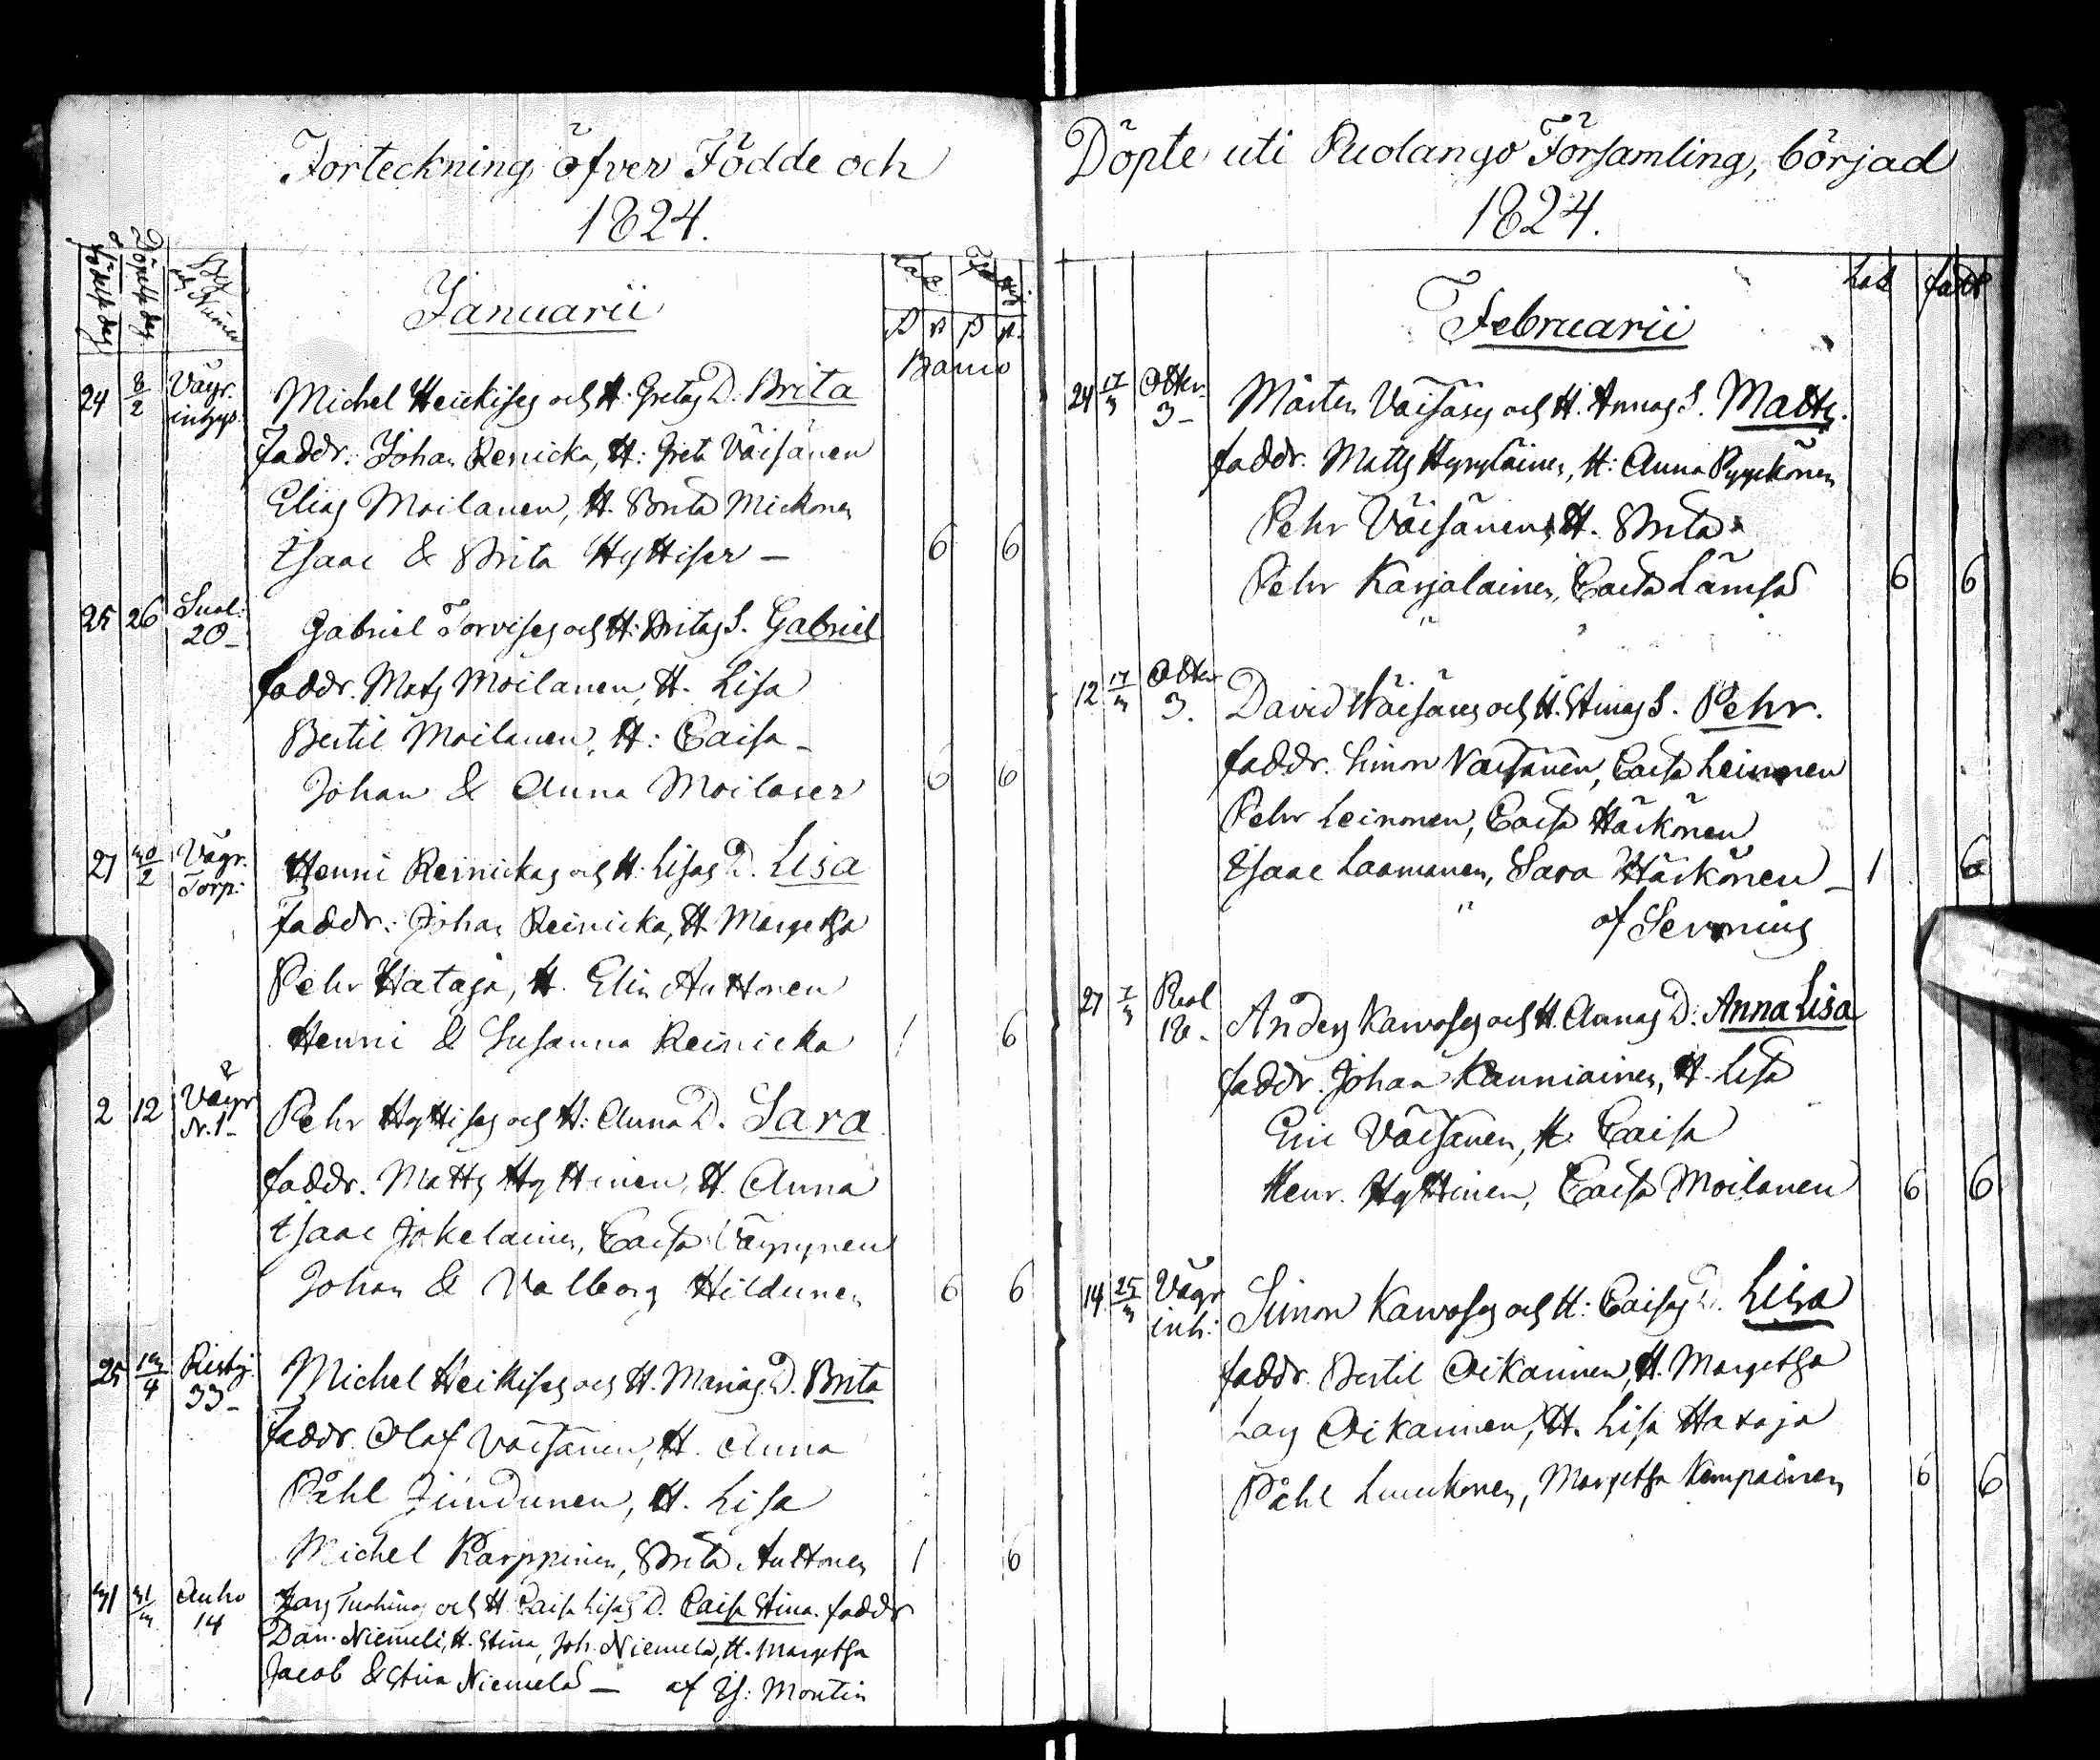 Forteckning öfver Födde och
1824.
Födelse dag
Döpelse dag
By och Numer
Januarii
24 8/2 Väyr. inhys.
Michel Heickises och H: Gretas D. Brita
faddr. Johan Renicka, H: Greta Väisänen
Elias Moilanen, H. Brita Mickonen
Isaac & Brita Hyttiser — 6 6
25 26 Suol: 20—
Gabriel Torvises och H: Britas S. Gabriel
faddr. Mats Moilanen, H. Lisa
Bertil Moilanen, H: Caisa —
Johan & Anna Moilaser 6 6
27 30/2 Vägr. Torp:
Henric Reinickas och H. Lisas D. Lisa
faddr: Johan Reinicka, H. Margetha
Pehr Hataja, H. Elin Anttonen
Henric & Susanna Reinicka 1 6
2 12 Väyr N. 1—
Pehr Hyttises och H: Anna D. Sara
faddr. Matts Hyttinen, H. Anna
Isaac Jokelainen, Caisa Väyrynen
Johan & Valborg Hildunen 6 6
25 13/4 Ristij. 33—
Michel Heikises och H. Marias D. Brita
faddr. Olof Väisänen, H. Anna
Påhl Jundunen, H. Lisa
Michel Karppinen, Brita Anttonen 1 6
31 31/3 Auho 14
Lars och H. Caisa Lisas D. Caisa Stina. faddr
Dan. Niemelä, H. Stina, Joh. Niemelä, H. Margetha
Jacob & Stina Niemelä — af Is: Montin
Döpte uti Puolango Församling, börjad
1824.
Februarii
faddr
24 17/3 Otter. 3—
Mårten Väisäses och H. Annas S. Matts.
faddr. Matts Hyryläinen, H: Anna Pyykönen
Pehr Väisänen, H. Brita
Pehr Karjalainen, Caisa Lämsä 6 6
12 17/3 Otter 3.
David Wäisäses och H. Stinas S. Pehr.
faddr. Simon Väisänen, Caisa Leinonen
Pehr Leinonen, Caisa Härkönen
Isaac Laamanen, Sara Härkönen — 1 6
af Servenius
27 7/3 Puol 18.
Anders Karvoses och H. Annas D: Anna Lisa
faddr. Johan Kauniainen, H. Lisa
Eric Väisänen, H. Caisa
Henr. Hyttinen, Caisa Moilanen 6 6
14 25/3 Väyr inh:
Simon Karvoses och H: Caisas D. Lisa
faddr. Bertil Oikarinen, H. Margetha
Lars Oikarinen, H. Lisa Hataja
Påhl Luukonen, Margetha Kempainen 6 6